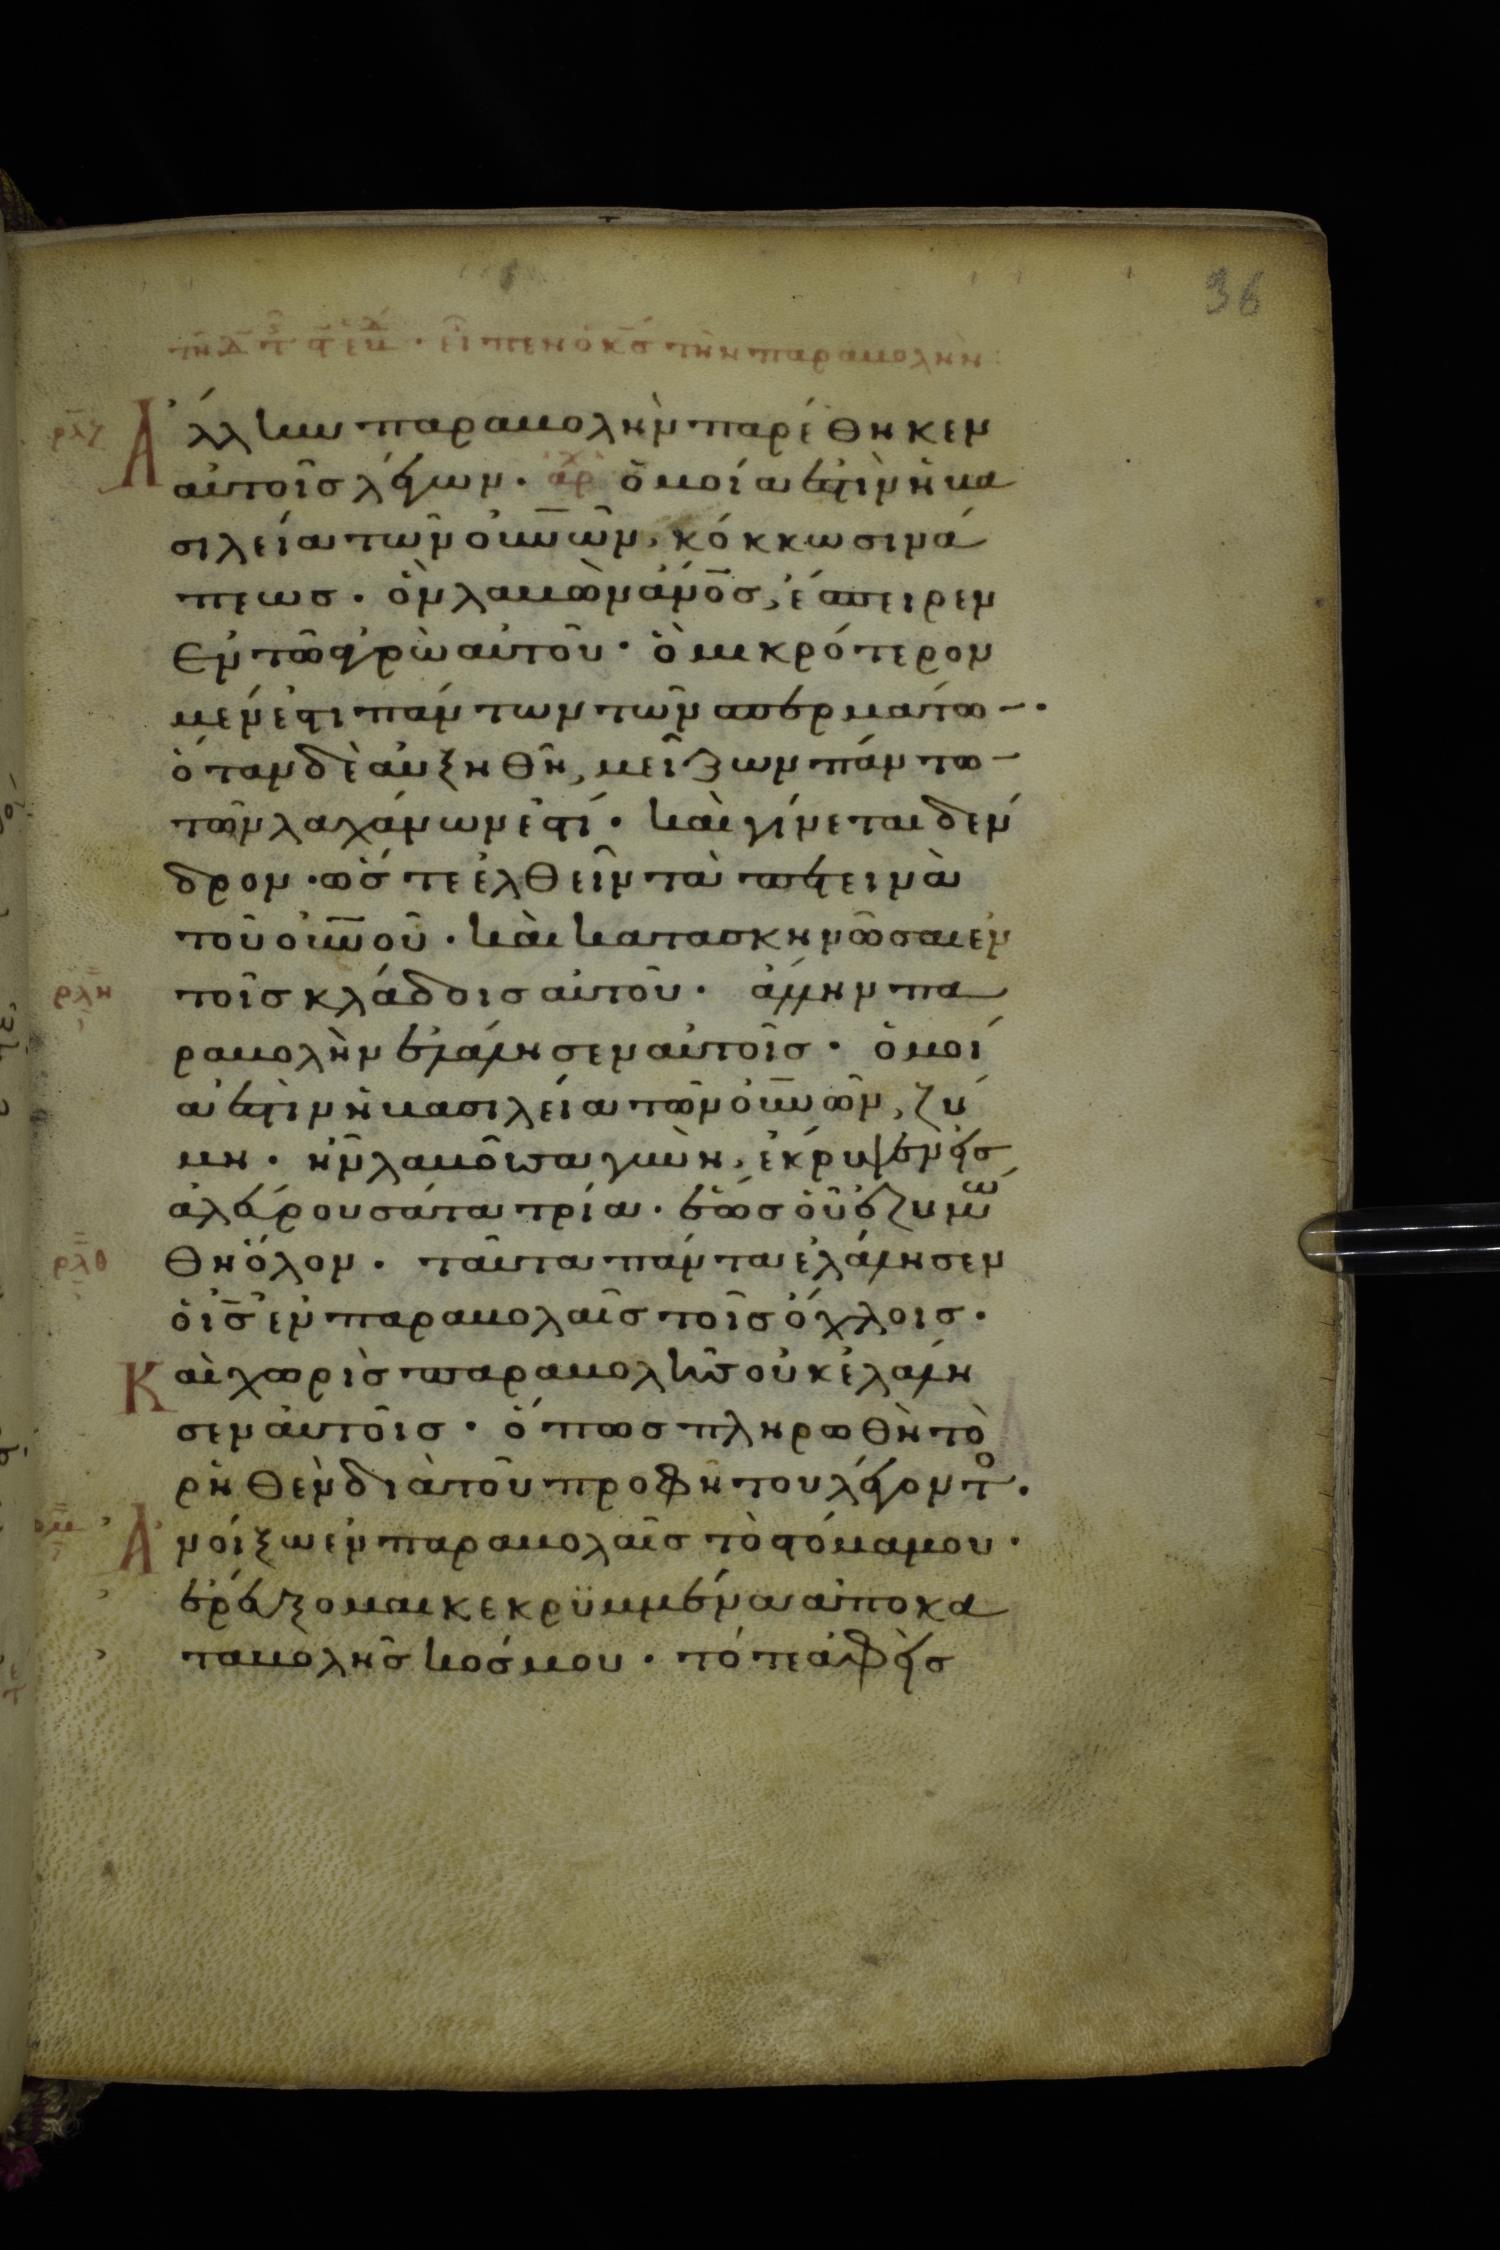 36
εἶπεν ὁ κς̅ τὴν παραβολὴν:
ρλζ Ἄλλην παραβολὴν παρέθηκεν
αὐτοῖς λέγων· ἀρχ ὁμοία ἐστὶν ἡ βα
σιλεία τῶν οὐν̅ῶν, κόκκω σινά
πεως· ὃν λαβὼν ἀν̅ο̅ς, ἔσπειρεν
ἐν τῶ ἀγρῶ αὐτοῦ· ὃ μικρότερον
μέν ἐστι πάντων τῶν σπερμάτω–·
ὅταν δὲ αὐξηθῆ, μεῖζων πάντω–
τῶν λαχάνων ἐστί· καὶ γίνεται δέν
δρον· ὥστε ἐλθεῖν τὰ πετεινὰ
τοῦ οὐν̅οῦ· καὶ κατασκηνῶσαι ἐν
ρλη τοῖς κλάδοις αὐτοῦ· ἄλλην πα
ραβολὴν ἐλάλησεν αὐτοῖς· ὁμοί
α ἐστὶν ἡ βασιλεία τῶν οὐν̅ῶν, ζύ
μη· ἣν λαβοῦσα γυνὴ, ἐκρυψεν εἰς
ἀλεύρου σάτα τρία· ἕως οὗ ἐζυμώ
ρλθ θη ὅλον· ταῦτα πάντα ἐλάλησεν
ὁ ις̅ ἐν παραβολαῖς τοῖς ὄχλοις·
Καὶ χωρὶς παραβολῆς οὐκ ἐλάλη
σεν αὐτοῖς· ὅπως πληρωθῆ τὸ
ῥηθὲν διὰ τοῦ προφήτου λέγοντο·
ρμ Ἀνοίξω ἐν παραβολαῖς τὸ στόμα μου·
ἐρεύξομαι κεκρϋμμένα ἀπὸ κα
ταβολῆς κόσμου· τότε ἀφεὶς